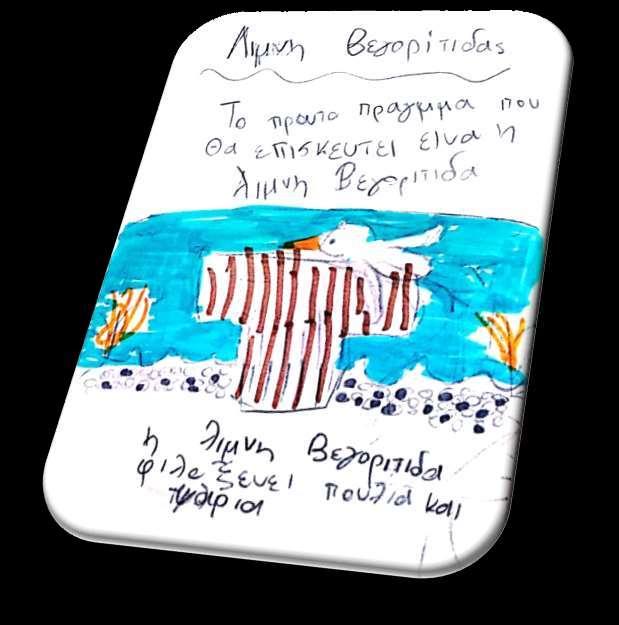 Λιμνη Βεγορίτιδας
Το πρωτο πραγμμα που
θα επισκευτει εινα η
λιμνη Βεγοριτιδα
η λιμνη Βεγοριτιδα
φιλοξενει πουλια και
ψαρια